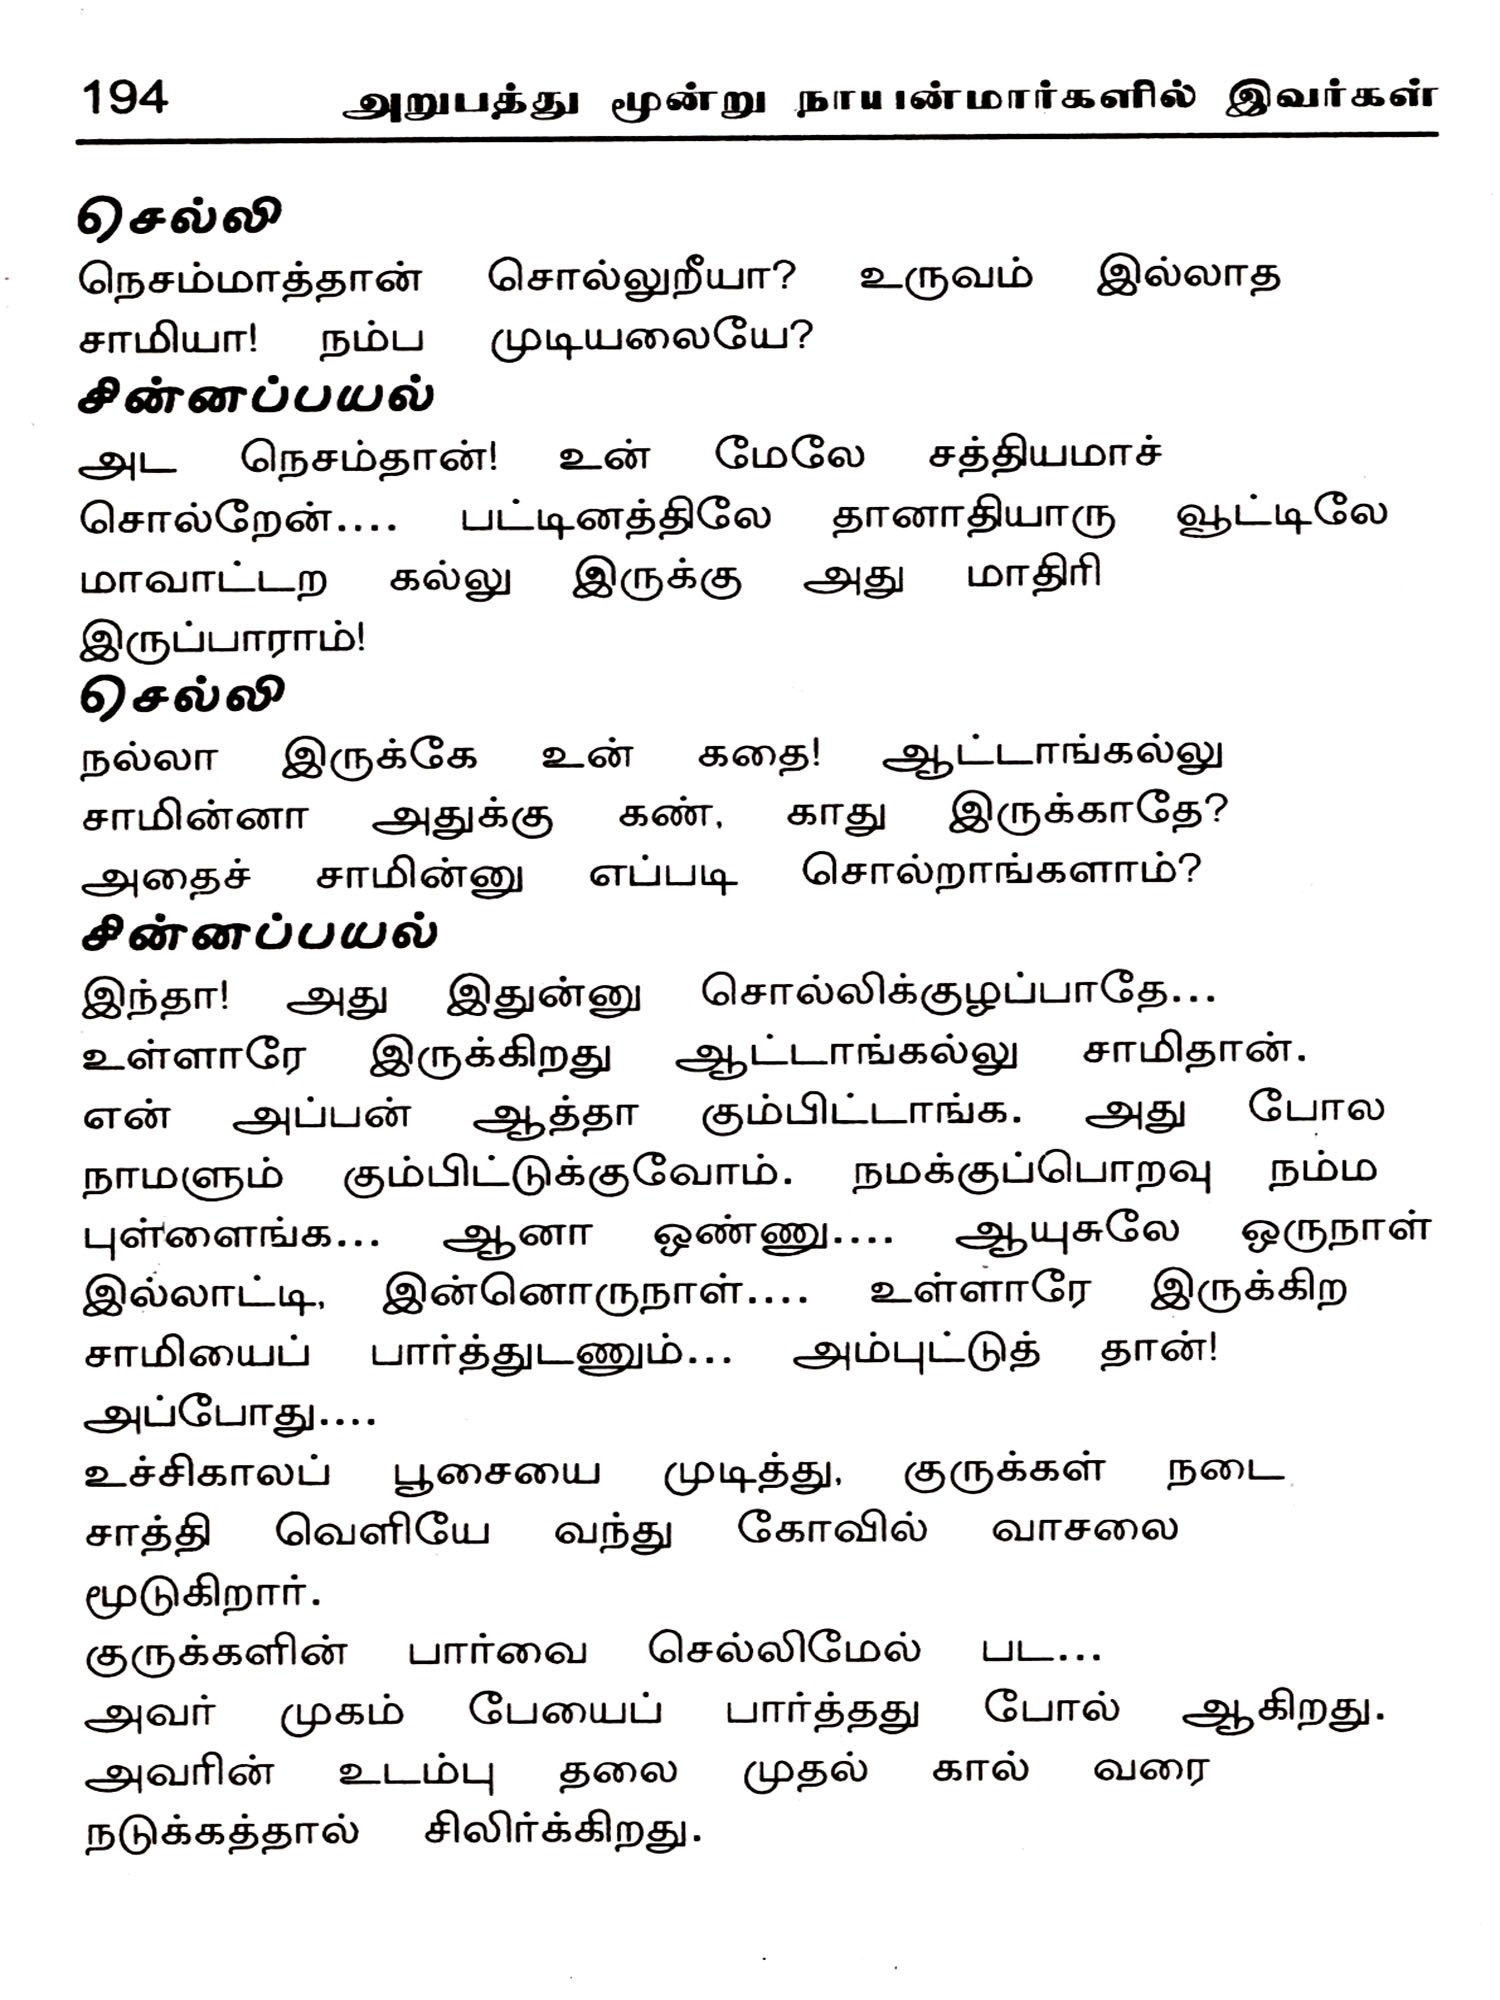 194 அறுபத்து மூன்று நாயன்மார்களில் இவர்கள்
செல்லி
நெசம்மாத்தான் சொல்லுறீயா? உருவம் இல்லாத
சாமியா! நம்ப முடியலையே?
சின்னப்பயல்
அட நெசம்தான்! உன் மேலே சத்தியமாச்
சொல்றேன்.... பட்டினத்திலே தானாதியாரு வூட்டிலே
மாவாட்டற கல்லு இருக்கு அது மாதிரி
இருப்பாராம்!
செல்லி
நல்லா இருக்கே உன் கதை! ஆட்டாங்கல்லு
சாமின்னா அதுக்கு கண், காது இருக்காதே?
அதைச் சாமின்னு எப்படி சொல்றாங்களாம்?
சின்னப்பயல்
இந்தா! அது இதுன்னு சொல்லிக்குழப்பாதே...
உள்ளாரே இருக்கிறது ஆட்டாங்கல்லு சாமிதான்.
என் அப்பன் ஆத்தா கும்பிட்டாங்க. அது போல
நாமளும் கும்பிட்டுக்குவோம். நமக்குப்பொறவு நம்ம
புள்ளைங்க... ஆனா ஒண்ணு.... ஆயுசுலே ஒருநாள்
இல்லாட்டி, இன்னொருநாள்.... உள்ளாரே இருக்கிற
சாமியைப் பார்த்துடணும்... அம்புட்டுத் தான்!
அப்போது....
உச்சிகாலப் பூசையை முடித்து, குருக்கள் நடை
சாத்தி வெளியே வந்து கோவில் வாசலை
மூடுகிறார்.
குருக்களின் பார்வை செல்லிமேல் பட...
அவர் முகம் பேயைப் பார்த்தது போல் ஆகிறது.
அவரின் உடம்பு தலை முதல் கால் வரை
நடுக்கத்தால் சிலிர்க்கிறது.